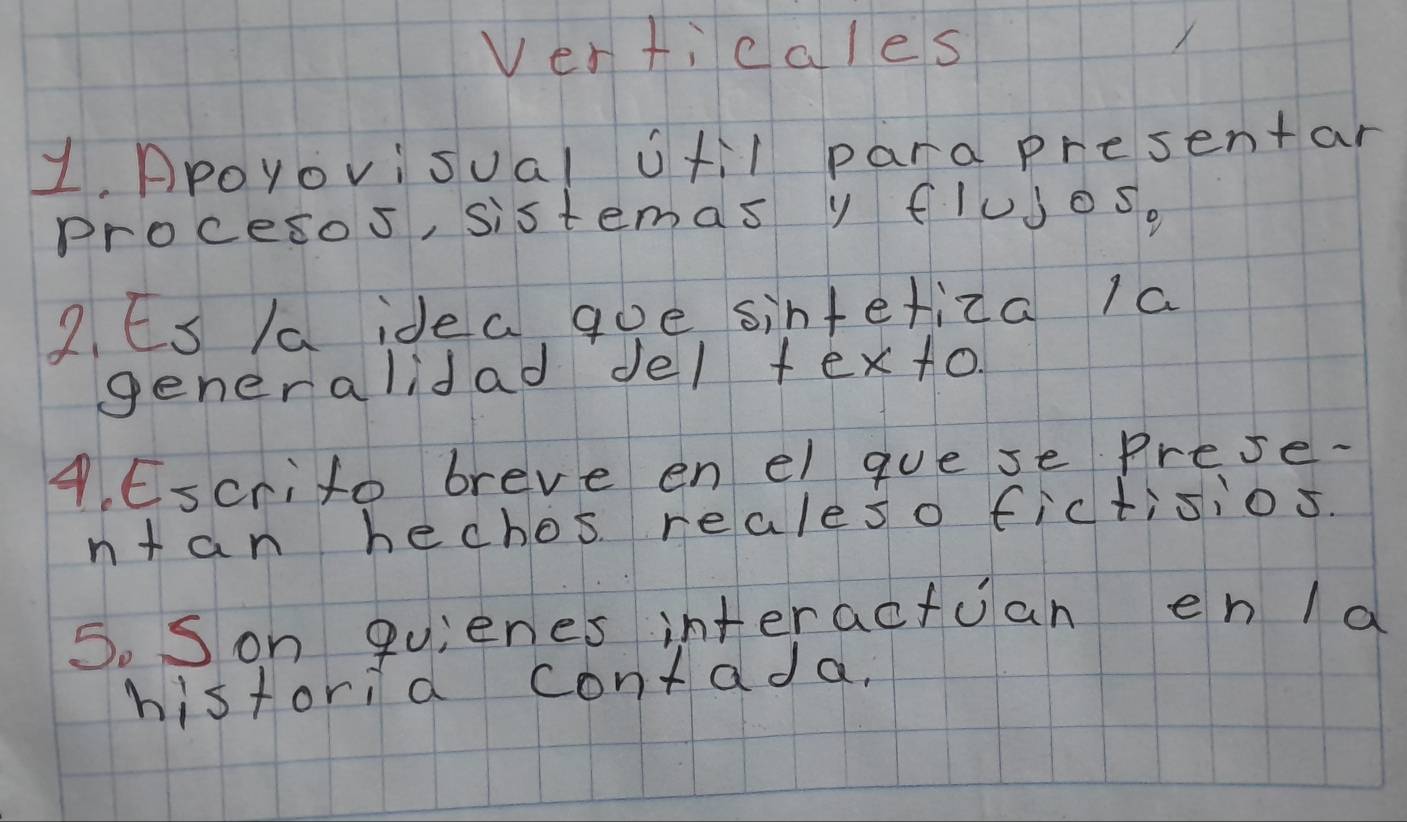 Verticales
1. Apoyo visual útil para presentar
procesos, sistemas y flujos.
2. Es la idea que sintetiza la
generalidad del texto.
4. Escrito breve en el que se prese-
ntan hechos reales o fictisios.
5. Son quienes interactúan en la
historia contada.